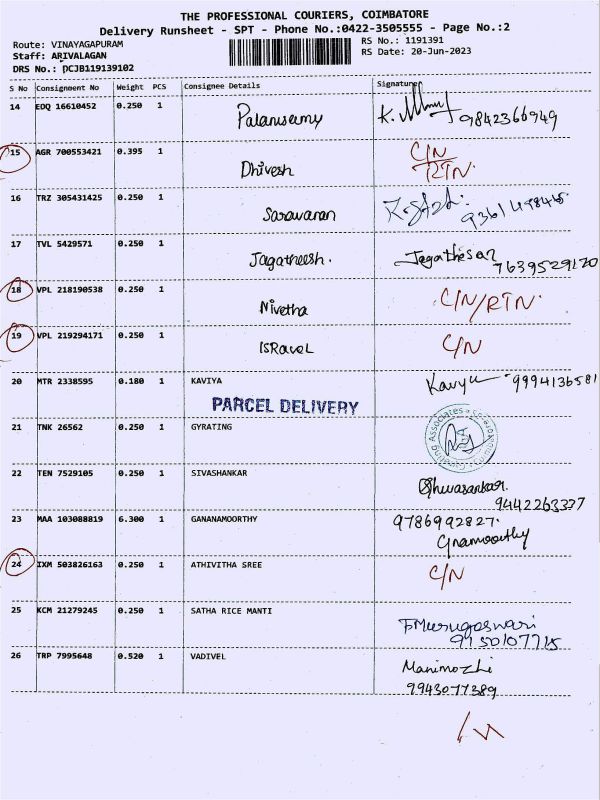 THE PROFESSIONAL COURIERS, COIMBATORE
Delivery Runsheet - SPT - Phone No.:0422-3505555 - Page No.:2
Route: VINAYAGAPURAM
RS No.: 1191391
Staff: ARIVALAGAN
RS Date: 20-Jun-2023
DRS No.: DCJB119139102
S No Consignment No Weight PCS Consignee Details Signature
14 EDQ 16610452 0.250 1 Palanisamy K. 9842366949
15 AGR 700553421 0.395 1 Dhivesh C/N RTN.
16 TRZ 305431425 0.250 1 Saravanan
17 TVL 5429571 0.250 1 Jagatheesh. Jagathesan 7639529120
18 VPL 218190538 0.250 1 Nivetha C/N/RTN.
19 VPL 219294171 0.250 1 ISRaveL C/N
20 MTR 2338595 0.180 1 KAVIYA Kavya 9994136581
PARCEL DELIVERY
21 TNK 26562 0.250 1 GYRATING
22 TEN 7529105 0.250 1 SIVASHANKAR Shivasankar. 9442263337
23 MAA 103088819 6.300 1 GANANAMOORTHY 9786992827. Gnamoorthy
24 IXM 503826163 0.250 1 ATHIVITHA SREE C/N
25 KCM 21279245 0.250 1 SATHA RICE MANTI 9150107715
26 TRP 7995648 0.520 1 VADIVEL Manimozhi 9943077389